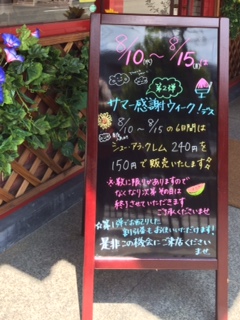 8/10(月)〜8/15(土)は
第2弾
サマー感謝ウィーク!デス
8/10〜8/15の6日間は
シュー・アラ・クレム 240円を
150円で販売いたします
※数に限りがありますので
なくなり次第その日は
終了させていただきます
ご了承くださいませ
割引券もお使いいただけます!
是非この機会にご来店ください
ませ